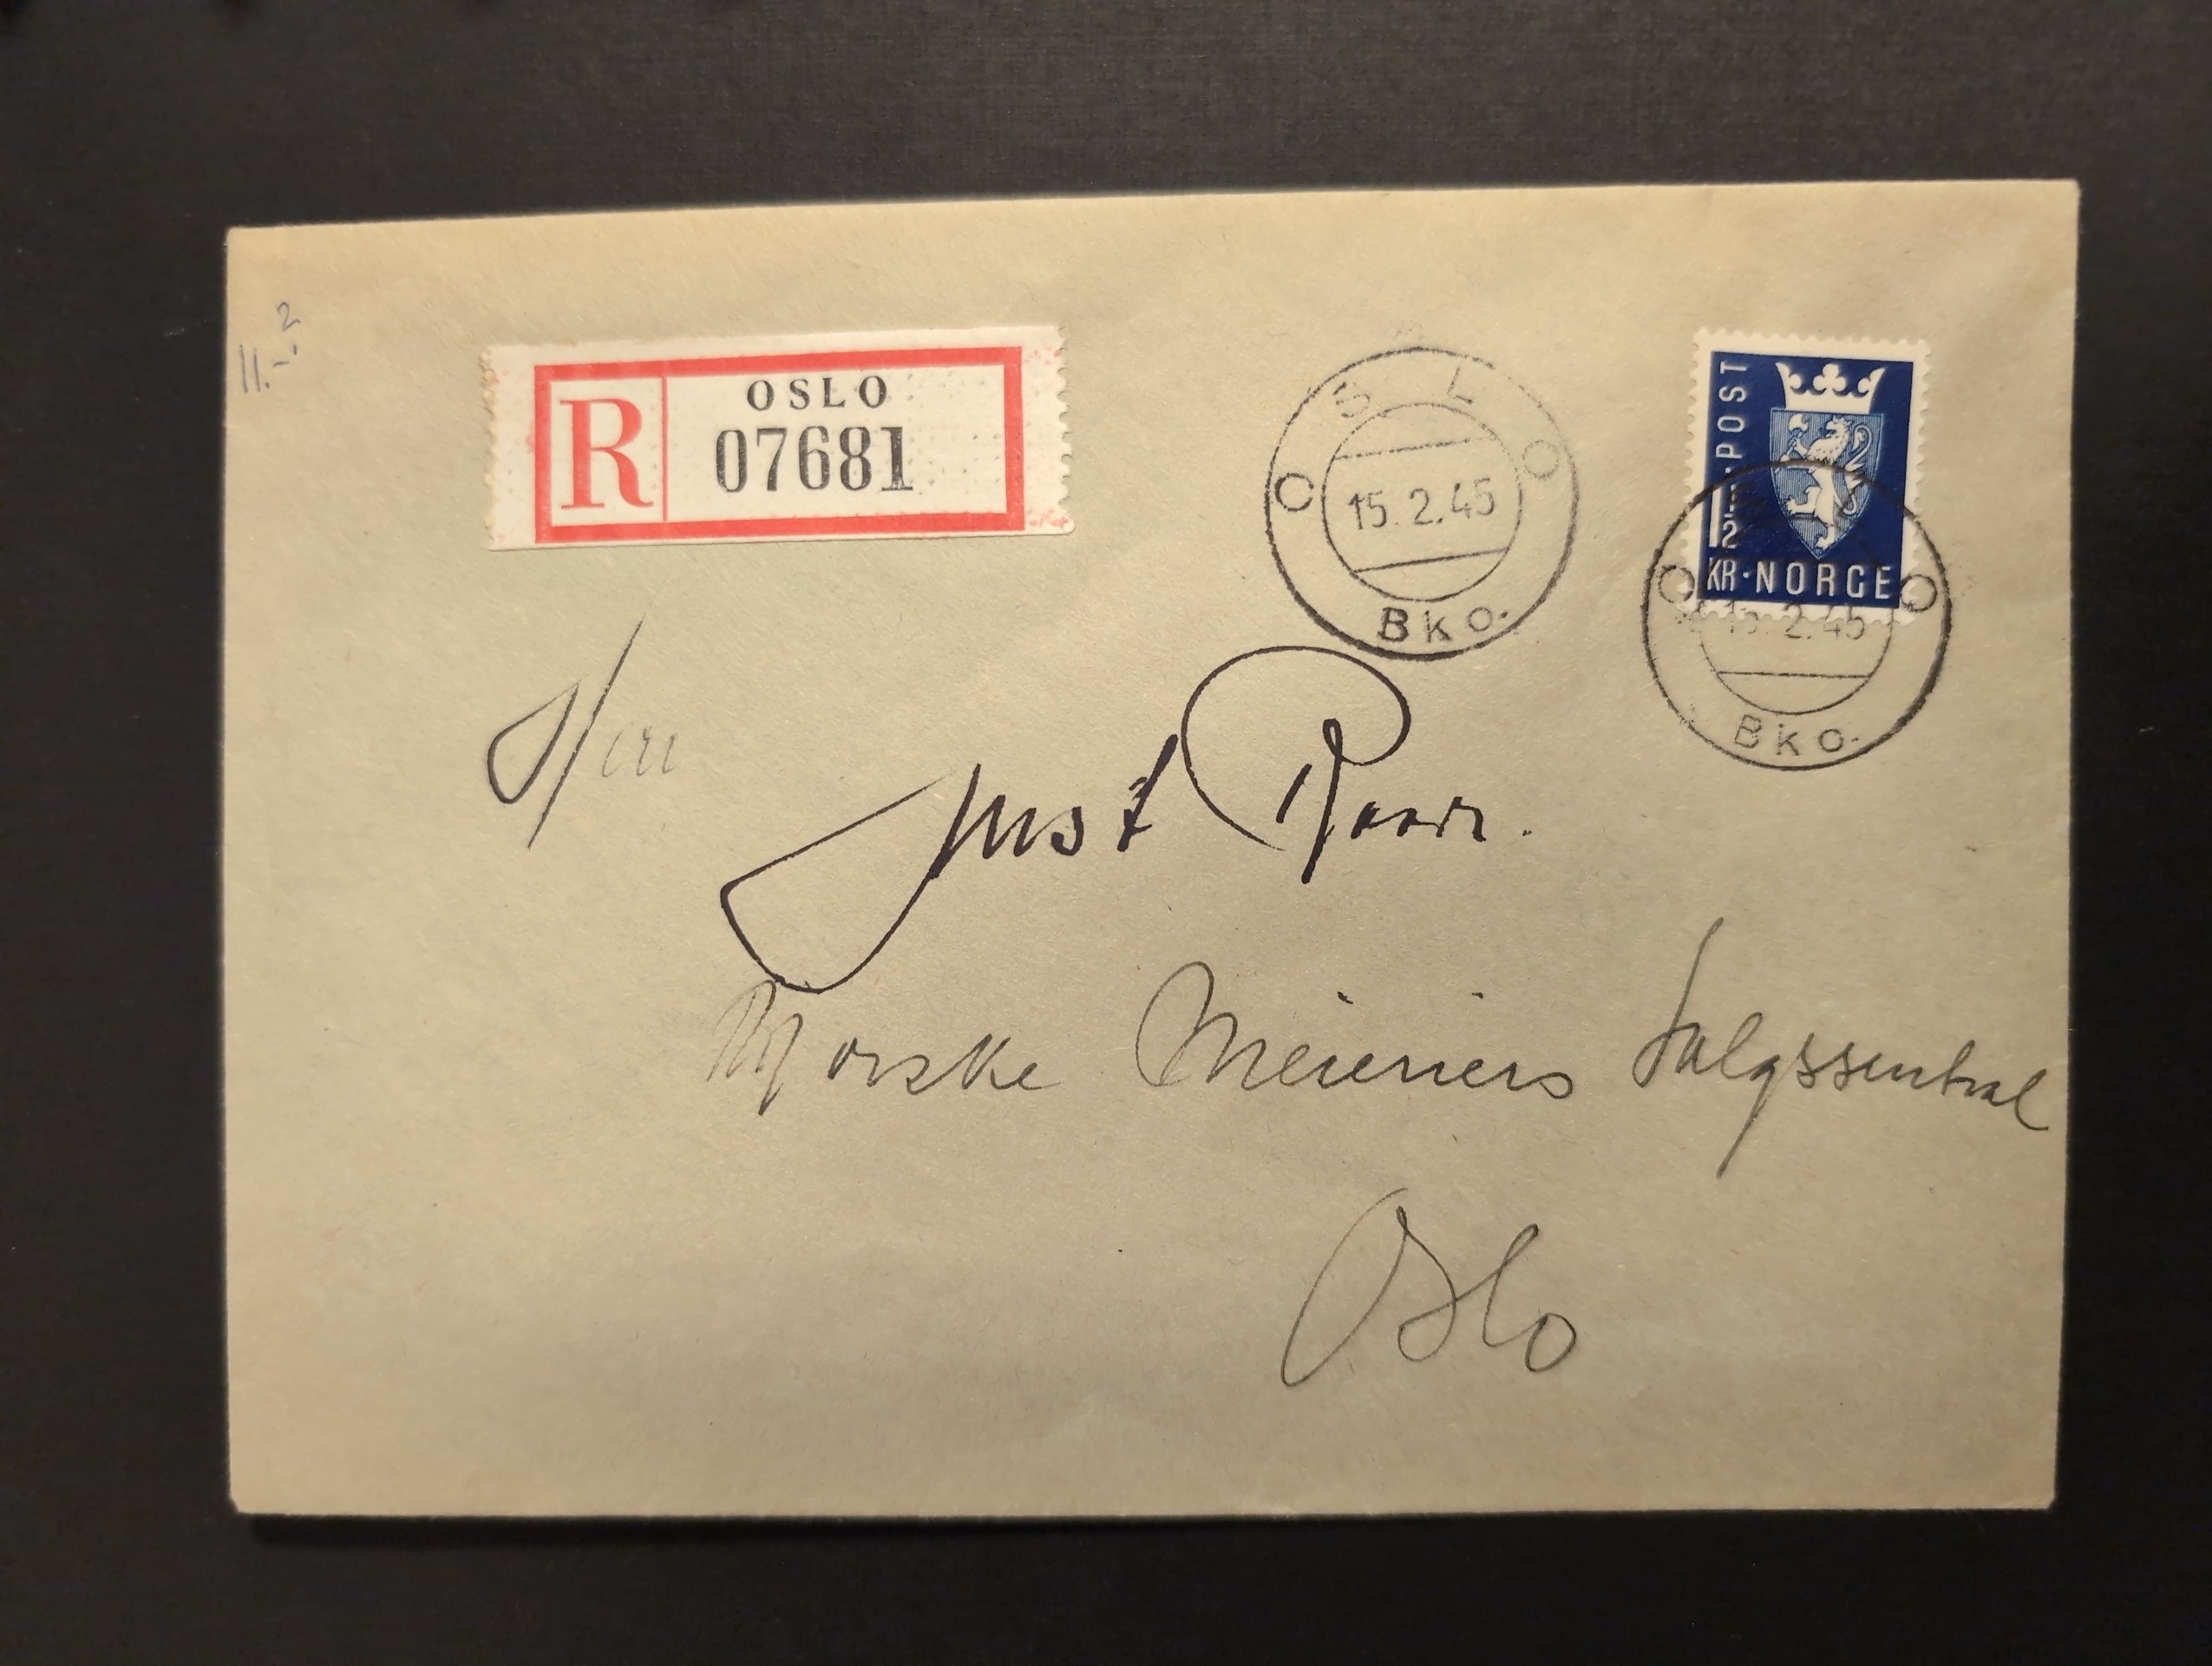 11.-²
R
OSLO
07681
OSLO
15.2.45
Bko.
POST
1½
KR·NORGE
O O
15.2.45
Bko.
Herr
Just
Norske Meieriers Salgssentral
Oslo